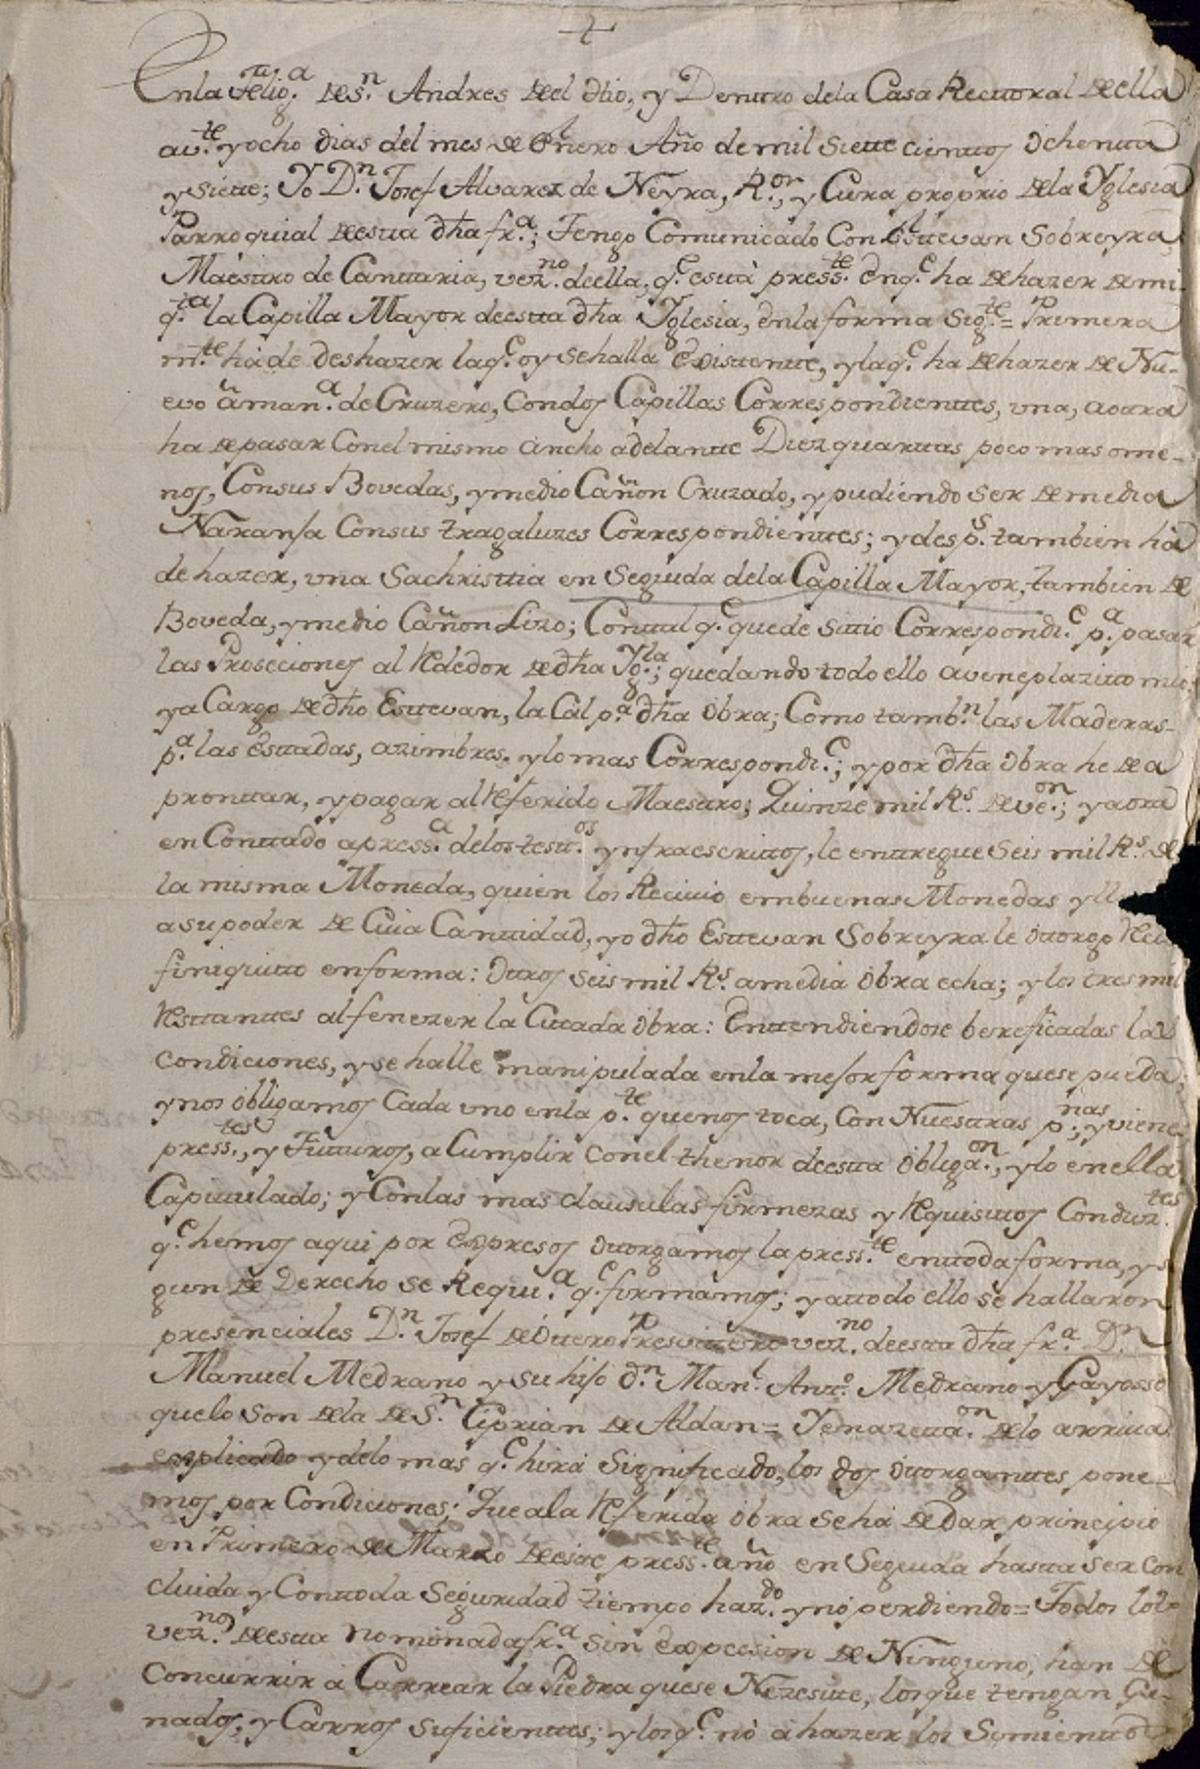 +
En la Felig.ª de S.n Andres de el dtio, y Denttro dela Casa Recttoral de ella
av.te y ocho dias del mes de Enero Año de mil Siette cienttos Ochentta
y siette; Yo D.n Josef Alvarez de Neyra, R.or, y Cura proprio de la Yglesia
Parroquial de estta dha fr.ª; Tengo Comunicado Con Esttevan Sobreyra,
Maesttro de Canttaria, vez.no de ella, q.e esttà press.te en q.e ha de hazer de mi
q.tta la Capilla Mayor de estta dha Yglesia, en la forma sig.te = Primera
m.te hà de deshazer la q.e oy se halla Existtentte, y la q.e ha de hazer de Nu-
evo à man.ª de Cruzero, Con dos Capillas Correspondienttes, vna, a ottra
ha de pasar Con el mismo ancho adelantte Diez quarttas poco mas ome-
nos, Con sus Bovedas, y medio Cañon Cruzado, y pudiendo ser de media
Naranja Con sus tragaluzes Correspondienttes; y desp.s tambien hà
de hazer, vna Sachristtia en Seguida dela Capilla Mayor, tambien de
Boveda, y medio Cañon Lizo; Con ttal q.e quede Sittio Correspondi.e p.ª pasar
las Prosecciones al Rededor de dha Yg.la; quedando todo ello a veneplazitto mio,
y a Cargo de dho Esttevan, la Cal p.ª dha Obra; Como tamb.n las Maderas
p.ª las Esttadas, azimbres, y lo mas Correspondi.e; y por dha Obra he de a
pronttar, y pagar al Referido Maesttro; Quinze mil R.s de ve.on; y aora
en Conttado a press.ª de los testt.os ynfraescrittos, le enttregue Seis mil R.s de
la misma Moneda, quien los Recivio em buenas Monedas y
a su poder de Cuia Canttidad, yo dho Esttevan Sobreyra le Ottorgo
finiquitto en forma: Ottros seis mil R.s a media Obra echa; y los tres mil
Resttanttes al fenezer la Cittada Obra: Enttendiendose berificadas las
Condiciones, y se halle manipulada en la mejor forma que se pueda;
y nos obligamos Cada vno en la p.te que nos toca, Con Nuesttras p.nas, y vienes
press.tes, y Futturos, a Cumplir con el thenor de estta Obliga.on, y lo en ella
Capittulado; y Con las mas clausulas firmezas y Requisittos Conduz.tes
q.e hemos aqui por Expresos Ottorgamos la press.te en ttoda forma, y se
gun de Derecho se Requi.ª q.e firmàmos; y a ttodo ello se hallaron
presenciales D.n Josef de Ottero Presvittero vez.no de estta dha fr.ª D.n
Manuel Medrano y su hijo d.n Man.l Antt.o Medrano y Gayosso
que lo son de la de S.n Ciprian de Aldan = Y em azetta.on de lo arriva
explicado y delo mas q.e hirà Significado, los dos Ottorganttes pone-
mos por Condiciones; Que a la Referida Obra se hà de Dar principio
en Primero de Marzo de estte press.te año en Seguida hastta ser Con
cluida y Con ttoda Seguridad tiempo haz.do y no perdiendo = Todos los
vez.nos de estta nominada fr.ª sin Excpcesion de Ninguno, han de
Concurrir à Carrear la Piedra que se Nezesitte, los que tengan Ga-
nados, y Carros suficienttes; y los q.e nò à hazer los Simientos